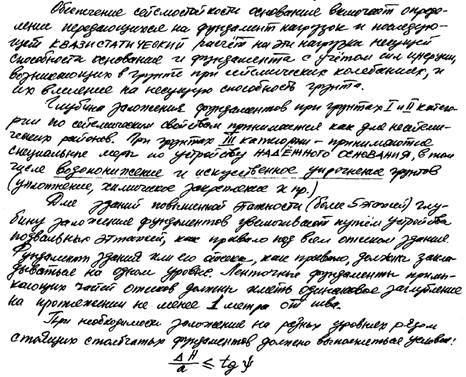 Обеспечение сейсмостойкости основания включает опреде-
ление передающихся на фундамент нагрузок и последую-
щий КВАЗИСТАТИЧЕСКИЙ расчёт на эти нагрузки несущей
способности основания и фундамента с учётом сил инерции,
возникающих в грунте при сейсмических колебаниях, и
их влияние на несущую способность грунта.
Глубина заложения фундаментов при грунтах I и II катего-
рии по сейсмическим свойствам принимается как для несейсми-
ческих районов. При грунтах III категории - принимаются
специальные меры по устройству НАДЁЖНОГО ОСНОВАНИЯ, в том
числе водопонижение и искусственное упрочнение грунтов
(уплотнение, химическое закрепление и пр.)
Для зданий повышенной этажности (более 5 этажей) глу-
бину заложения фундаментов увеличивают путём устройства
подвальных этажей, как правило под всем отсеком здания.
Фундамент здания или его отсека, как правило, должен закла-
дываться на одном уровне. Ленточные фундаменты примы-
кающих частей отсеков должны иметь одинаковое заглубление
на протяжении не менее 1 метра от шва.
При необходимости заложения на разных уровнях рядом
стоящих столбчатых фундаментов должно выполняться условие:
ΔH/a ≤ tg ψ